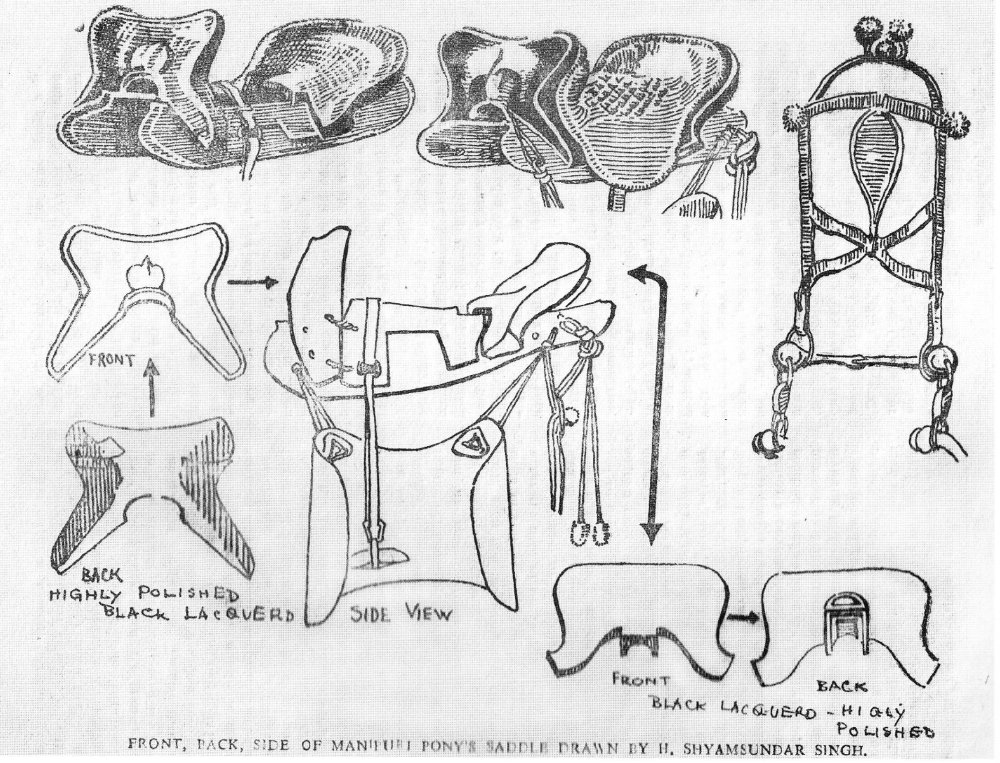 FRONT
BACK
HIGHLY POLISHED
BLACK LACQUERD
SIDE VIEW
FRONT
BACK
BLACK LACQUERD - HIGLY
POLISHED
FRONT, BACK, SIDE OF MANIPURI PONY'S SADDLE DRAWN BY H. SHYAMSUNDAR SINGH.